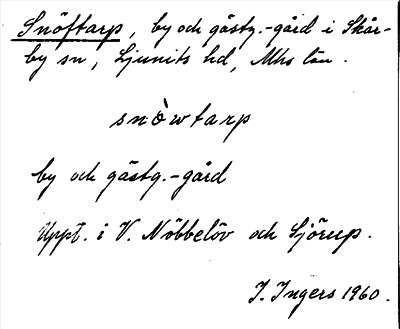 Snöftarp, by och gästg.-gård i Skår-
by sn, Ljunits hd, Mhs län.
snòwtarp
by och gästg.-gård
Uppt. i V. Nöbbelöv och Sjörup.
I. Ingers 1960.